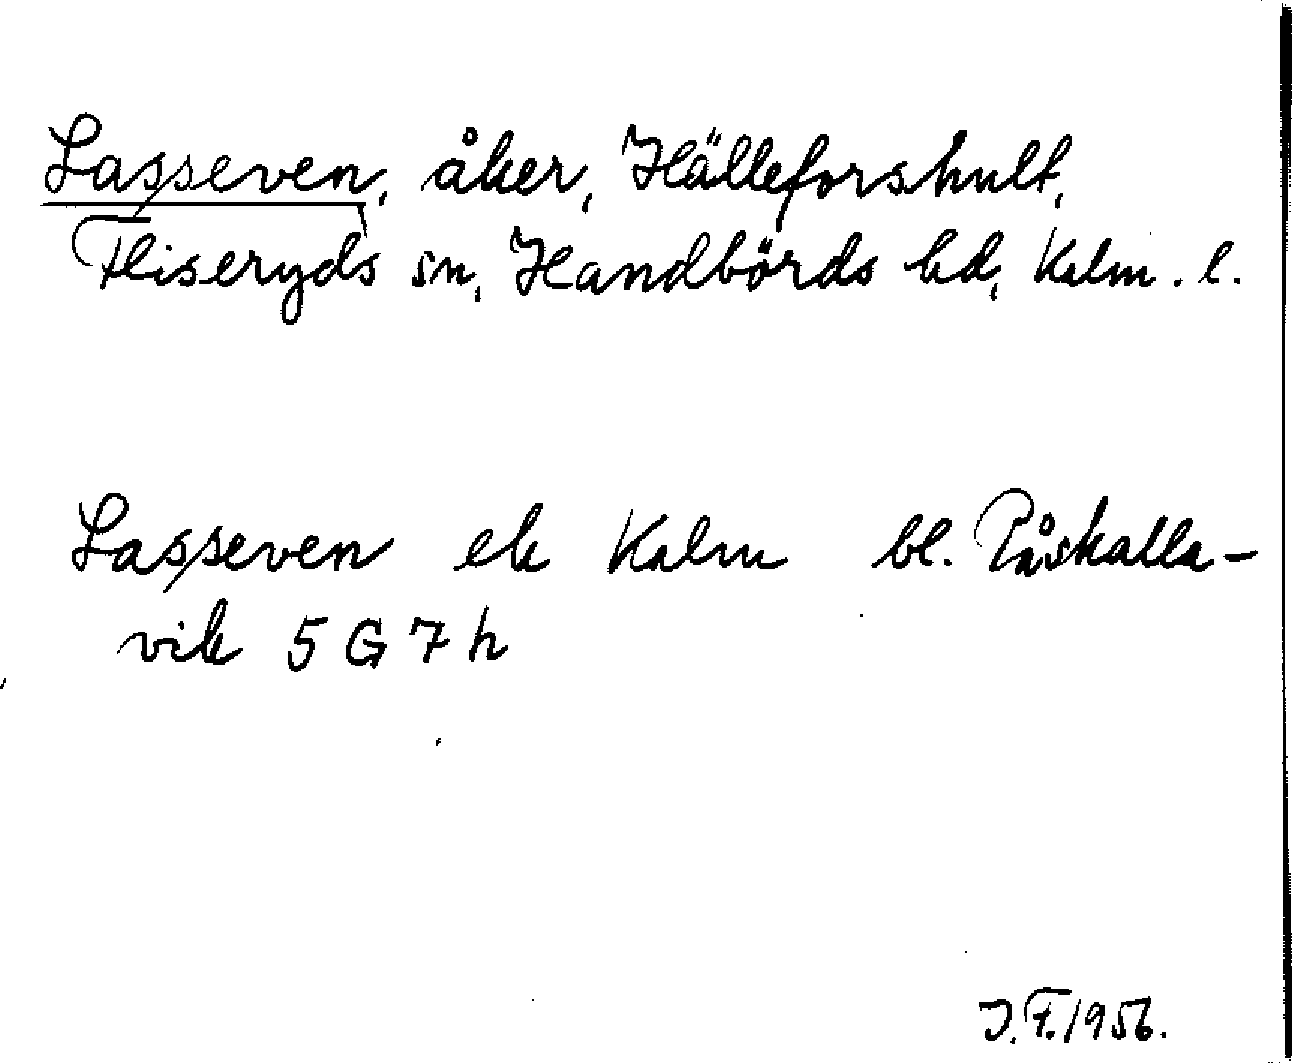 Lasseven, åker, Hälleforshult,
Fliseryds sn, Handbörds hd, Kalm. l.
Lasseven ek Kalm bl. Påskalla-
vik 5 G 7 h
J. F. 1956.